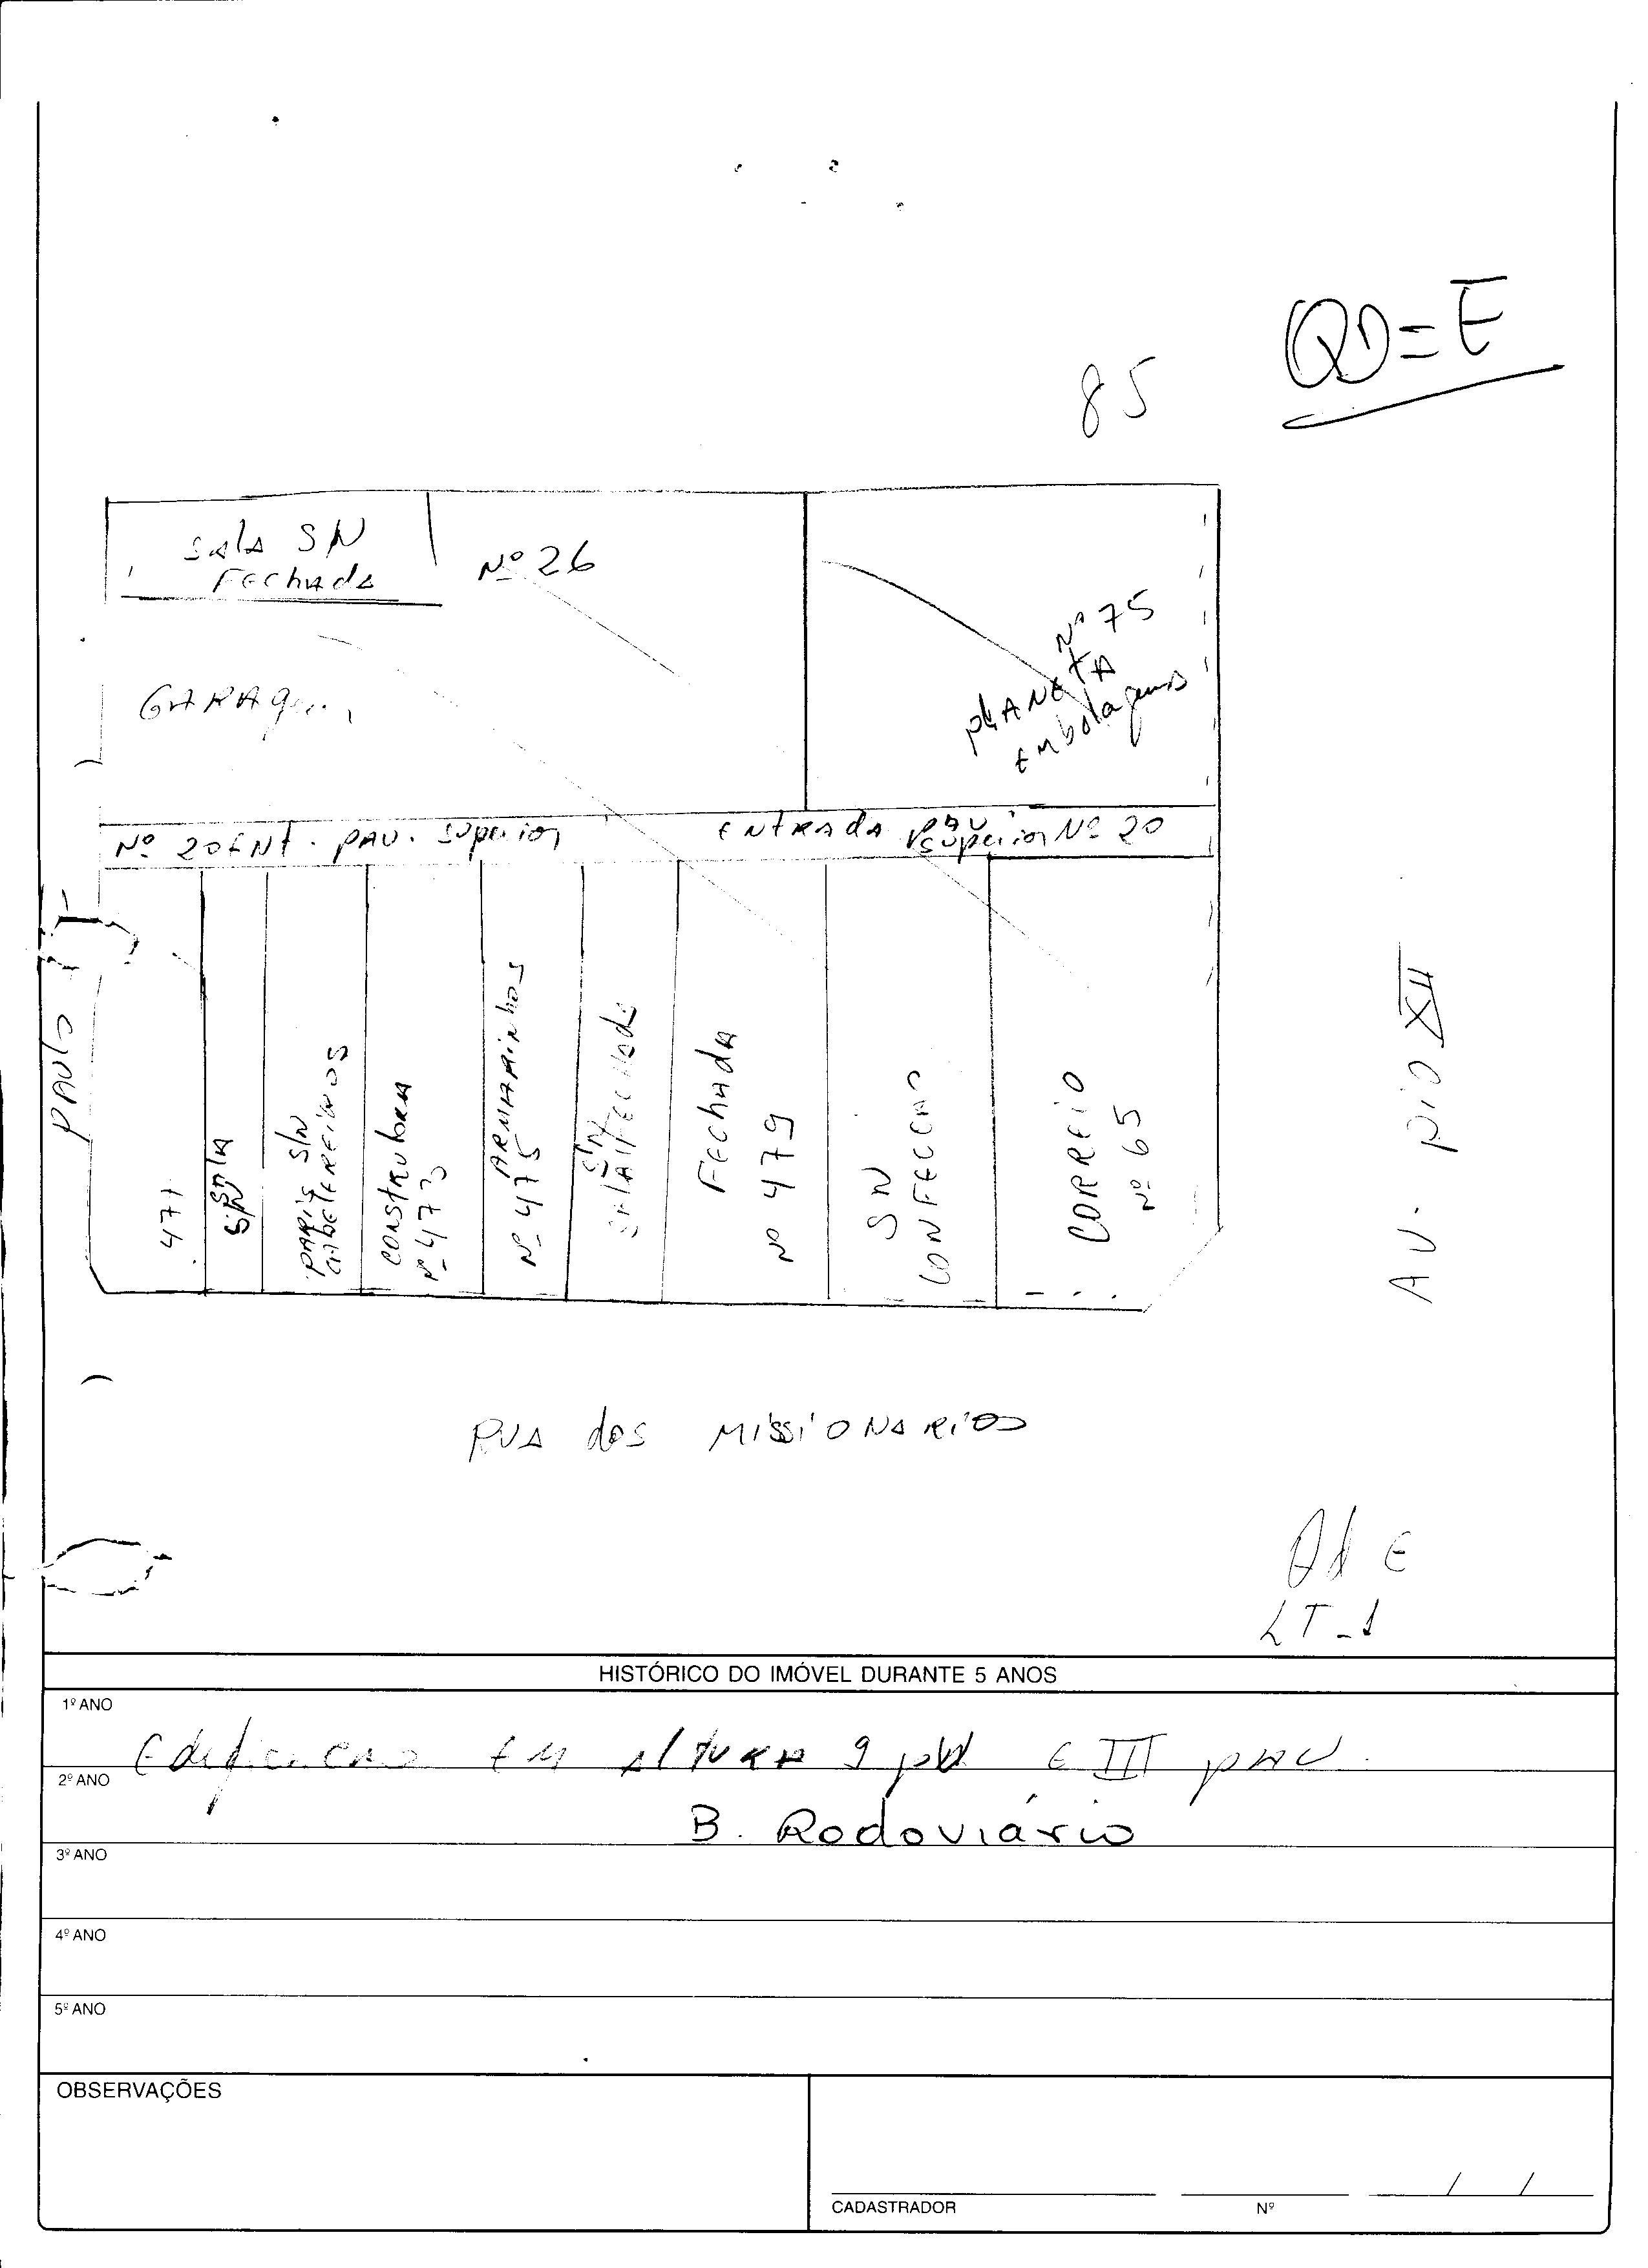 QD=E
85
Sala SN
Fechada
Nº 26
Nº 75
PLANETA
Embalagens
GARAgem
Nº 20 ENt. PAV. Superior
ENtRAdA PAV
Superior Nº 20
PAULO
471
SALA
S/N
PARIS S/N
CABELEREIROS
CONStRutORA
Nº 473
ARMARinhos
Nº 475
S/N
SALA FECHAdA
Fechada
Nº 479
SN
CONFECCAO
CORREIO
Nº 65
AV. PIO XII
RUA dos MissiONARiOS
Qd E
LT-1
HISTÓRICO DO IMÓVEL DURANTE 5 ANOS
1º ANO
Edificacao EM AltURA 9 E III PAV.
2º ANO
B. Rodoviário
3º ANO
4º ANO
5º ANO
OBSERVAÇÕES
/ /
CADASTRADOR
Nº